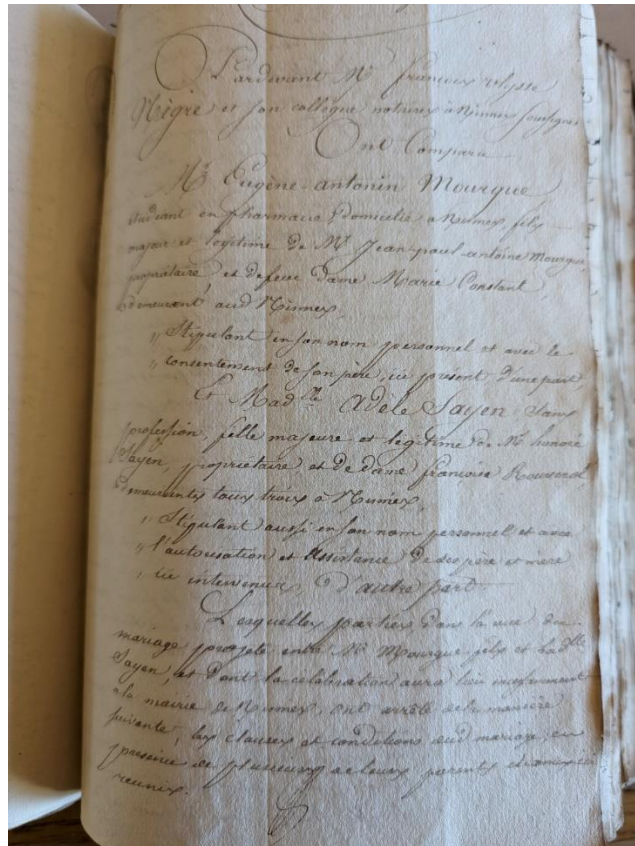 Pardevant Me françois ulysse
Nigre et son collègue notaires à Nismes soussignés
Ont Comparu
Mr Eugène-antonin Mourgue
étudiant en pharmacie domicilié à Nismes, fils
majeur et légitime de Mr Jean-paul-antoine Mourgue,
propriétaire, et defeue dame Marie Constant,
demeurant aud Nismes,
„ Stipulant en son nom personnel et avec le
„ consentement de son père, ici présent d'une part,
Et Madlle Adèle Sayen sans
profession, fille majeure et légitime de Mr honoré
Sayen, propriétaire et de dame françoise
demeurants tous trois à Nismes,
„ Stipulant aussi en son nom personnel et avec
„ l'autorisation et Assistance de ses père et mère
„ ici intervenus, d'autre part.
Lesquelles parties dans la vue du
mariage projeté entre Mr Mourgue fils et la dlle
Sayen et dont la célébration aura lieu incessamment
à la mairie de Nismes, ont arrêté de la manière
suivante, les clauses et conditions dud mariage, en
présence de plusieurs de leurs parents et amis ici
reunis.